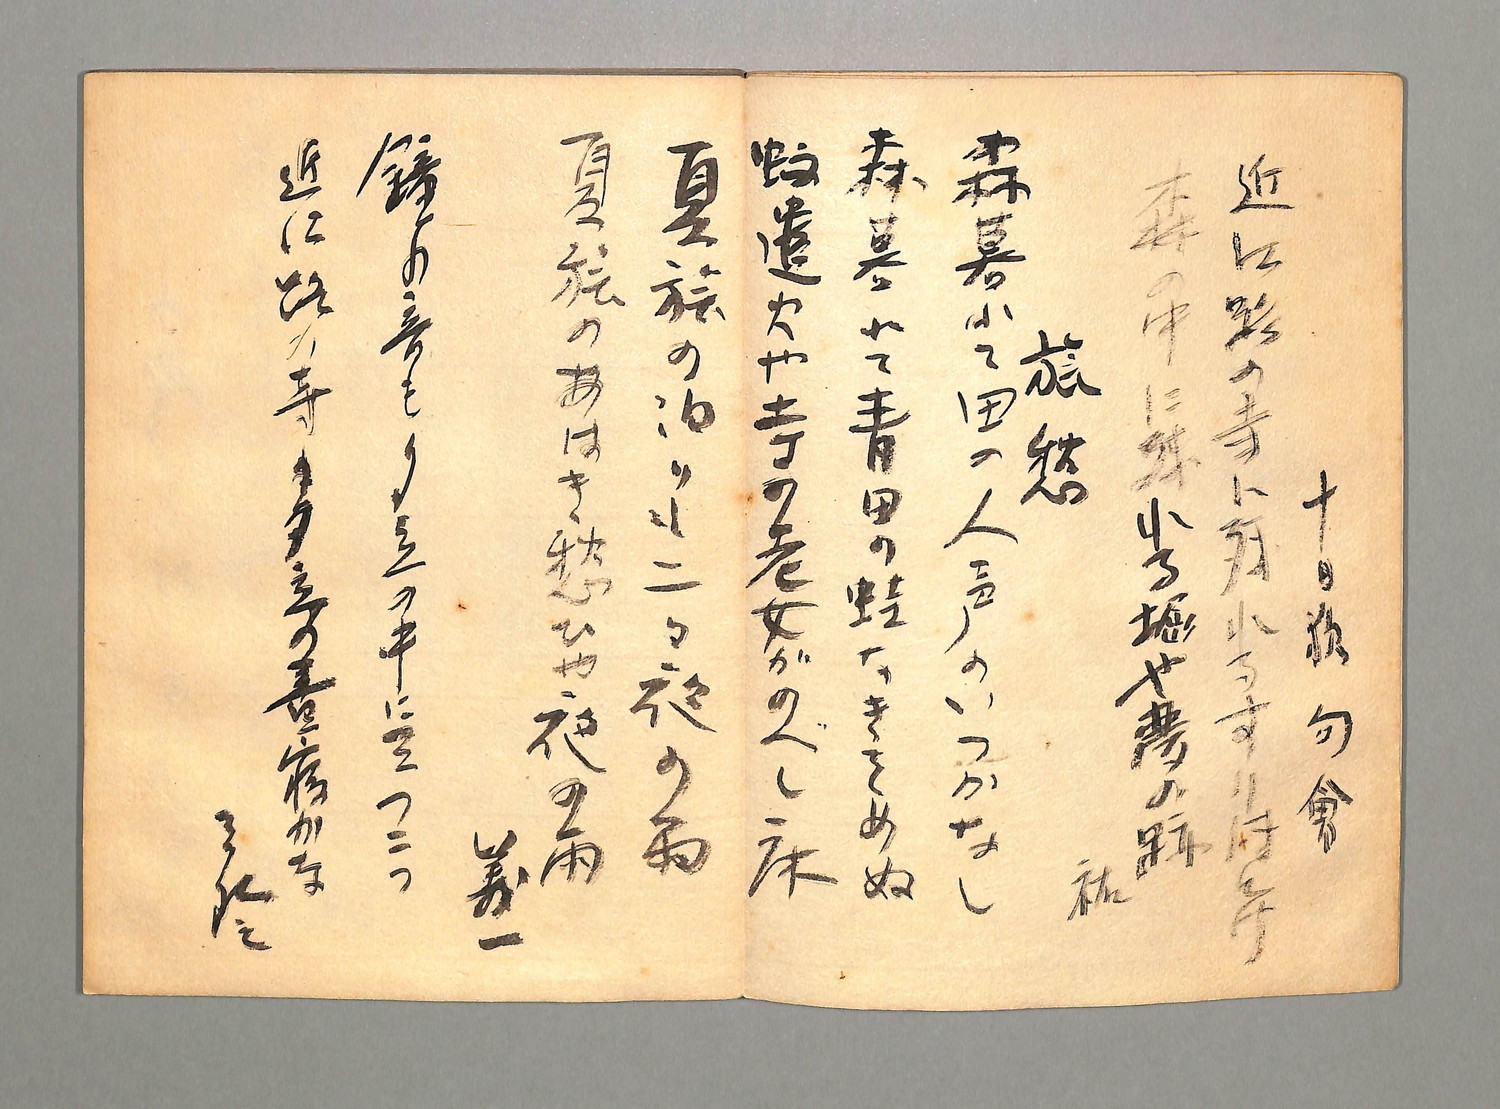 十日 句會
近江路の寺に残れるすりほとけ
森の中に残れる堀や夢の跡
祐
旅愁
森暮れて田の人声のいつかなし
森暮れて青田の蛙なきそめぬ
蚊遣火や寺の老女がのべし床
夏旅の泊り二タ夜の雨
夏旅のあはき愁ひや夜の雨
義一
鐘の音も夕立の中に一つ二つ
近江路の寺の夕立のかな